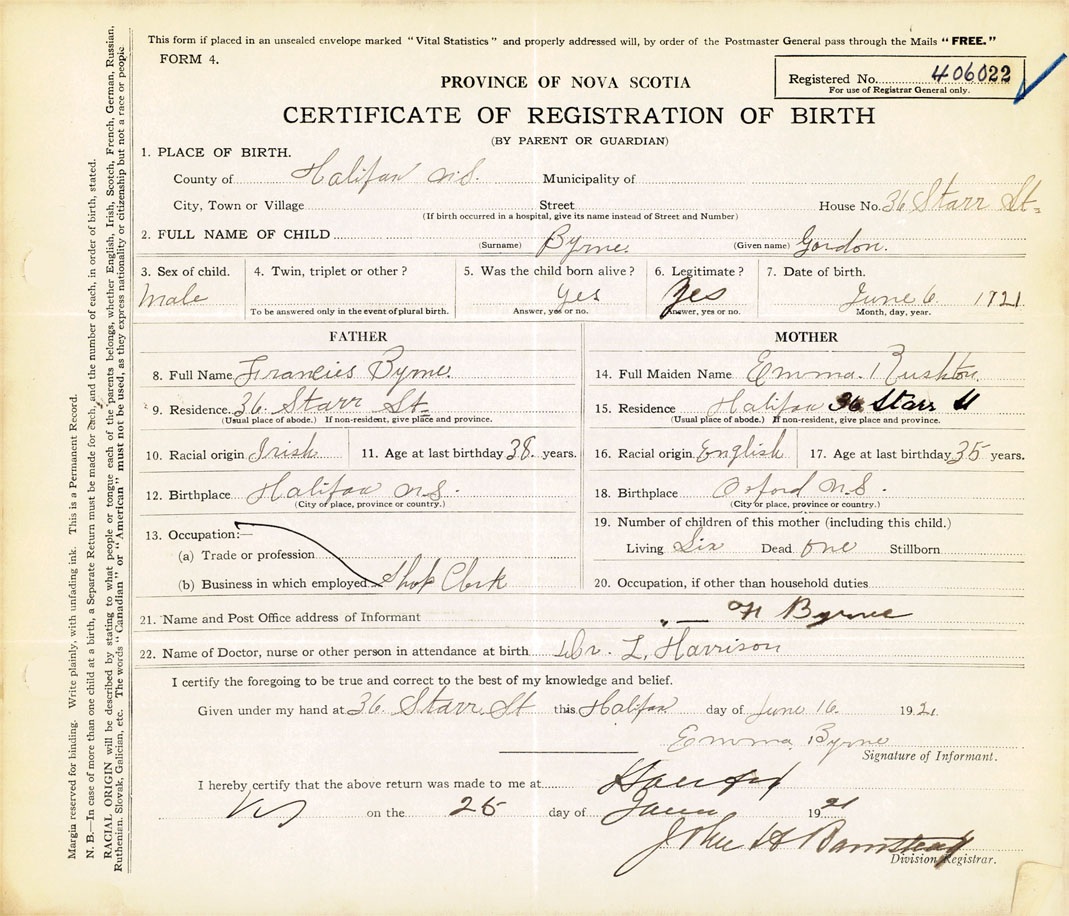 This form if placed in an unsealed envelope marked "Vital Statistics" and properly addressed will, by order of the Postmaster General pass through the Mails "FREE."
FORM 4.
Registered No. 406022
For use of Registrar General only.
PROVINCE OF NOVA SCOTIA
CERTIFICATE OF REGISTRATION OF BIRTH
(BY PARENT OR GUARDIAN)
1. PLACE OF BIRTH.
County of Halifax N.S. Municipality of
City, Town or Village Street House No. 36 Starr St
(If birth occurred in a hospital, give its name instead of Street and Number)
2. FULL NAME OF CHILD (Surname) Byrne. (Given name) Gordon.
3. Sex of child. 4. Twin, triplet or other? 5. Was the child born alive? 6. Legitimate? 7. Date of birth.
Male Yes Yes June 6 1921
To be answered only in the event of plural birth. Answer, yes or no. Answer, yes or no. Month, day, year.
FATHER
8. Full Name Francies Byrne.
9. Residence 36 Starr St
(Usual place of abode.) If non-resident, give place and province.
10. Racial origin Irish 11. Age at last birthday 38 years.
12. Birthplace Halifax N.S.
(City or place, province or country.)
13. Occupation:—
(a) Trade or profession
(b) Business in which employed Shop Clerk
MOTHER
14. Full Maiden Name Emma Rushton.
15. Residence Halifax 36 Starr St
(Usual place of abode.) If non-resident, give place and province.
16. Racial origin English 17. Age at last birthday 35 years.
18. Birthplace Oxford N.S.
(City or place, province or country.)
19. Number of children of this mother (including this child.)
Living Six Dead one Stillborn
20. Occupation, if other than household duties
21. Name and Post Office address of Informant Byrne
22. Name of Doctor, nurse or other person in attendance at birth Dr. L. Harrison
I certify the foregoing to be true and correct to the best of my knowledge and belief.
Given under my hand at 36 Starr St this Halifax day of June 16 1921
Emma Byrne
Signature of Informant.
I hereby certify that the above return was made to me at Halifax
NS on the 25 day of June 1921
John H Barnstead
Division Registrar.
Margin reserved for binding. Write plainly, with unfading ink. This is a Permanent Record.
N. B.—In case of more than one child at a birth, a Separate Return must be made for each, and the number of each, in order of birth, stated.
RACIAL ORIGIN will be described by stating to what people or tongue each of the parents belongs, whether English, Irish, Scotch, French, German, Russian.
Ruthenian. Slovak, Galician, etc. The words "Canadian" or "American" must not be used, as they express nationality or citizenship but not a race or people